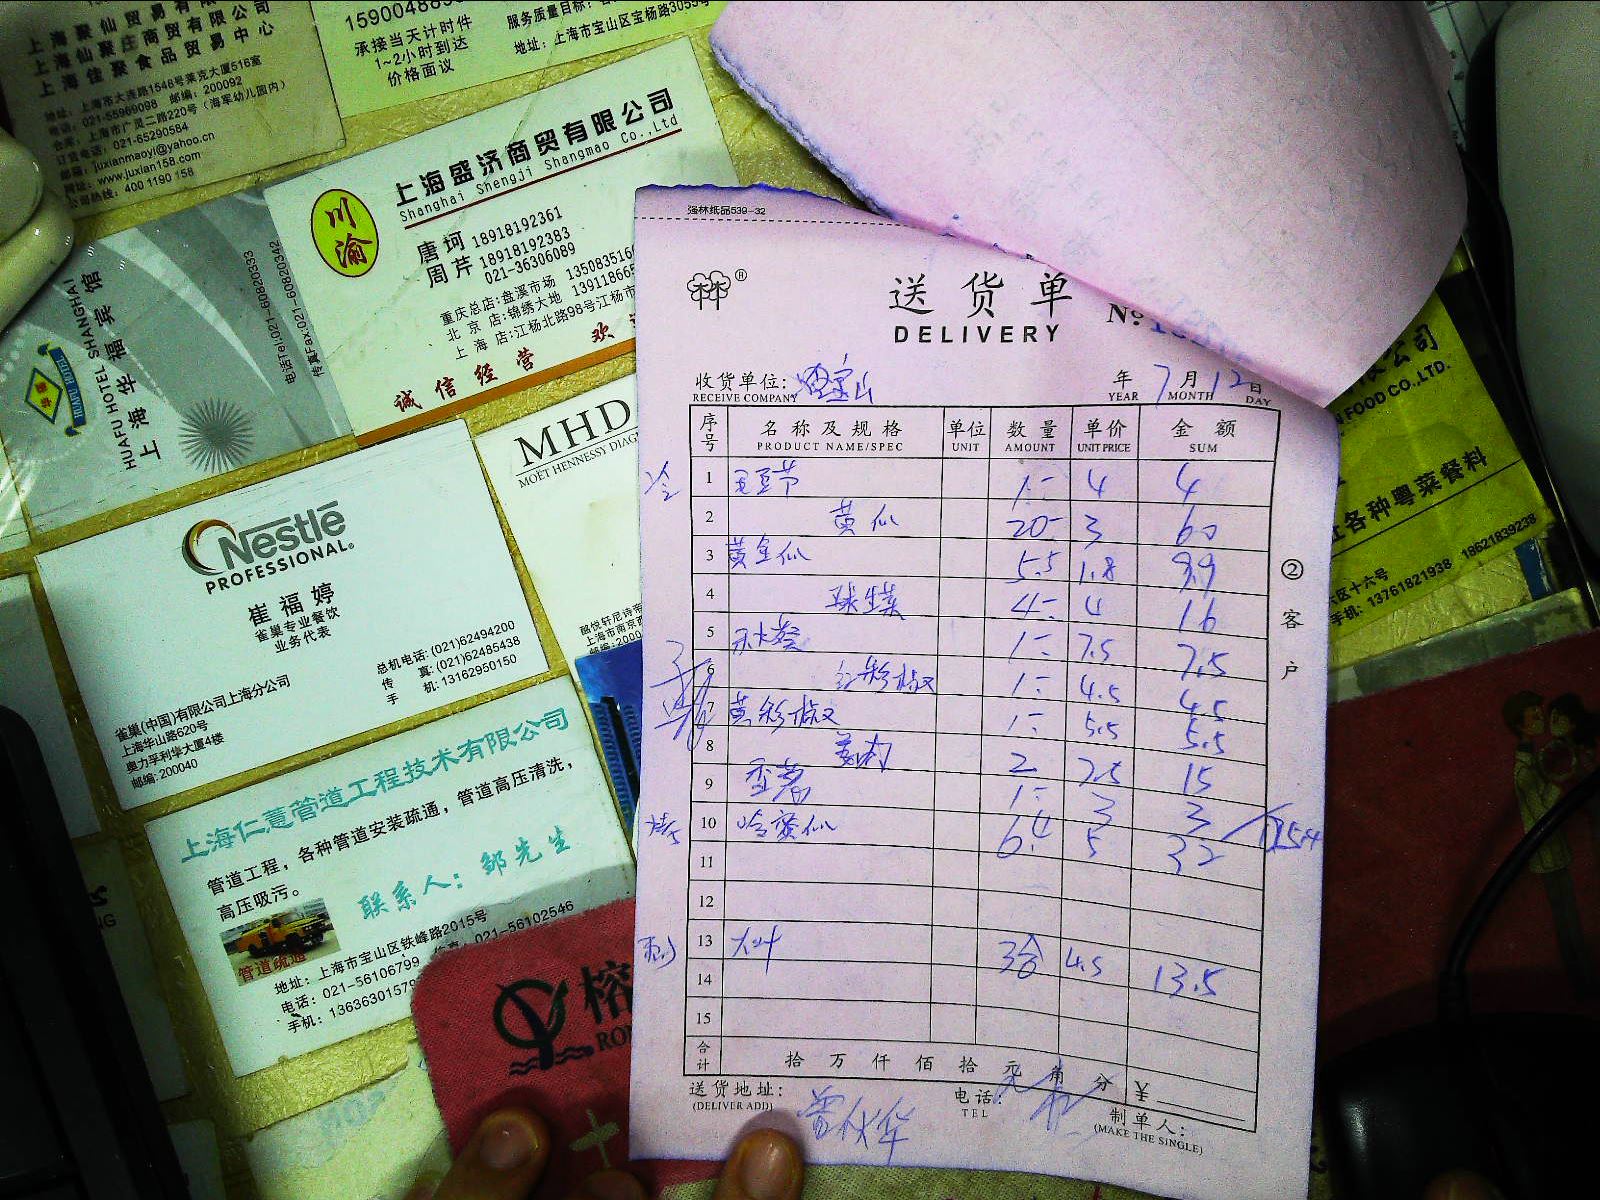 上海聚仙贸易有限
上海仙聚庄商贸有限公司
上海佳聚食品贸易中心
地址：上海市大连路1548号莱克大厦516室
电话：021-55969098 邮编：200092
仓库：上海市广灵二路220号（海军幼儿园内）
订货电话：021-65290584
邮箱：juxianmaoyi@yahoo.cn
网址：www.juxian158.com
公司热线：400 1190 158
承接当天计时件
1~2小时到达
价格面议
服务质量目标：
地址：上海市宝山区宝杨路3055号
川渝
上海盛济商贸有限公司
Shanghai Shengji Shangmao Co.,Ltd
唐珂 18918192361
周芹 18918192383
021-36306089
重庆总店:盘溪市场 13508351
北京店:锦绣大地 139118665
上海店:江杨北路98号江杨市
诚信经营 欢
HUAFU HOTEL SHANGHAI
上海华福宾馆
电话Tel:021-60820333
传真Fax:021-60820342
MHD
MOËT HENNESSY DIAG
酩悦轩尼诗帝
上海市南京西
Nestlé
PROFESSIONAL®
崔福婷
雀巢专业餐饮
业务代表
总机电话: (021)62494200
传 真: (021)62485438
手 机: 13162950150
雀巢(中国)有限公司上海分公司
上海华山路620号
奥力孚利华大厦4楼
邮编: 200040
上海仁薏管道工程技术有限公司
管道工程，各种管道安装疏通，管道高压清洗，
高压吸污。
联系人：邹先生
管道疏通
地址：上海市宝山区铁峰路2015号
电话：021-56106799 传真：021-56102546
手机：1363630157
榕
强林纸品539-32
送货单
DELIVERY
№
收货单位: 宝山
RECEIVE COMPANY
年 7月12日
YEAR MONTH DAY
序号 名称及规格 单位 数量 单价 金额
PRODUCT NAME/SPEC UNIT AMOUNT UNIT PRICE SUM
冷 1 毛豆节 1- 4 4
2 黄瓜 20- 3 60
3 黄金瓜 5.5 1.8 9.9
4 球生菜 4- 4 16
5 7.5 7.5
6 红彩椒 1- 4.5 4.5
7 黄彩椒 1- 5.5 5.5
8 2 7.5 15
9 香葱 1- 3 3
10 冷黄瓜 6.4 5 32
11
12
13 大叶 3合 4.5 13.5
14
15
合计 拾万仟佰拾元角分 ¥
②客户
送货地址:
(DELIVER ADD)
电话:
TEL
制单人:
(MAKE THE SINGLE)
公司
FOOD CO.,LTD.
各种粤菜餐料
区十六号
手机: 13761821938 18621839238